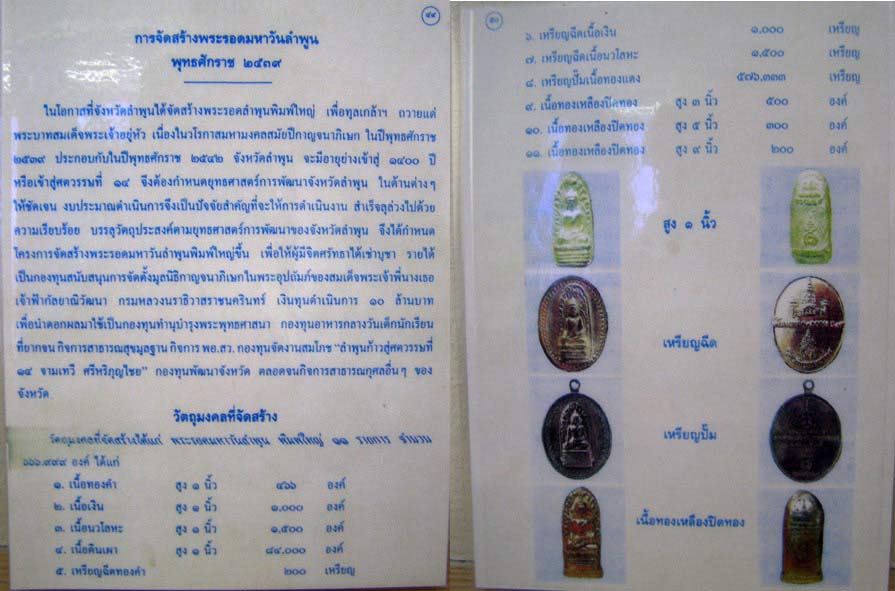 ๔๙
การจัดสร้างพระรอดมหาวันลำพูน
พุทธศักราช ๒๕๓๙
ในโอกาสที่จังหวัดลำพูนได้จัดสร้างพระรอดลำพูนพิมพ์ใหญ่ เพื่อทูลเกล้าฯ ถวายแด่
พระบาทสมเด็จพระเจ้าอยู่หัว เนื่องในวโรกาสมหามงคลสมัยปีกาญจนาภิเษก ในปีพุทธศักราช
๒๕๓๙ ประกอบกับในปีพุทธศักราช ๒๕๔๒ จังหวัดลำพูน จะมีอายุย่างเข้าสู่ ๑๔๐๐ ปี
หรือเข้าสู่ศตวรรษที่ ๑๔ จึงต้องกำหนดยุทธศาสตร์การพัฒนาจังหวัดลำพูน ในด้านต่างๆ
ให้ชัดเจน งบประมาณดำเนินการจึงเป็นปัจจัยสำคัญที่จะให้การดำเนินงาน สำเร็จลุล่วงไปด้วย
ความเรียบร้อย บรรลุวัตถุประสงค์ตามยุทธศาสตร์การพัฒนาของจังหวัดลำพูน จึงได้กำหนด
โครงการจัดสร้างพระรอดมหาวันลำพูนพิมพ์ใหญ่ขึ้น เพื่อให้ผู้มีจิตศรัทธาได้เช่าบูชา รายได้
เป็นกองทุนสนับสนุนการจัดตั้งมูลนิธิกาญจนาภิเษกในพระอุปถัมภ์ของสมเด็จพระเจ้าพี่นางเธอ
เจ้าฟ้ากัลยาณิวัฒนา กรมหลวงนราธิวาสราชนครินทร์ เงินทุนดำเนินการ ๑๐ ล้านบาท
เพื่อนำดอกผลมาใช้เป็นกองทุนทำนุบำรุงพระพุทธศาสนา กองทุนอาหารกลางวันเด็กนักเรียน
ที่ยากจน กิจการสาธารณสุขมูลฐาน กิจการ พอ.สว. กองทุนจัดงานสมโภช "ลำพูนก้าวสู่ศตวรรษที่
๑๔ จามเทวี ศรีหริภุญไชย" กองทุนพัฒนาจังหวัด ตลอดจนกิจการสาธารณกุศลอื่นๆ ของ
จังหวัด
วัตถุมงคลที่จัดสร้าง
วัตถุมงคลที่จัดสร้างได้แก่ พระรอดมหาวันลำพูน พิมพ์ใหญ่ ๑๑ รายการ จำนวน
๖๖๖,๙๙๙ องค์ ได้แก่
๑. เนื้อทองคำ สูง ๑ นิ้ว ๔๖๖ องค์
๒. เนื้อเงิน สูง ๑ นิ้ว ๑,๐๐๐ องค์
๓. เนื้อนวโลหะ สูง ๑ นิ้ว ๑,๕๐๐ องค์
๔. เนื้อดินเผา สูง ๑ นิ้ว ๘๔,๐๐๐ องค์
๕. เหรียญฉีดทองคำ ๒๐๐ เหรียญ
๕๐
๖. เหรียญฉีดเนื้อเงิน ๑,๐๐๐ เหรียญ
๗. เหรียญฉีดเนื้อนวโลหะ ๑,๕๐๐ เหรียญ
๘. เหรียญปั๊มเนื้อทองแดง ๕๗๖,๓๓๓ เหรียญ
๙. เนื้อทองเหลืองปิดทอง สูง ๓ นิ้ว ๕๐๐ องค์
๑๐. เนื้อทองเหลืองปิดทอง สูง ๕ นิ้ว ๓๐๐ องค์
๑๑. เนื้อทองเหลืองปิดทอง สูง ๙ นิ้ว ๒๐๐ องค์
สูง ๑ นิ้ว
เหรียญฉีด
เหรียญปั๊ม
เนื้อทองเหลืองปิดทอง